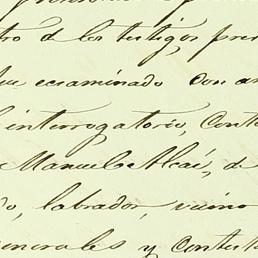 tro de los testigos pre
fue ecsaminado con ar
l interrogatorio, Conte
Manuel Alcaí, de
do, labrador, vecino
enerales y Contest